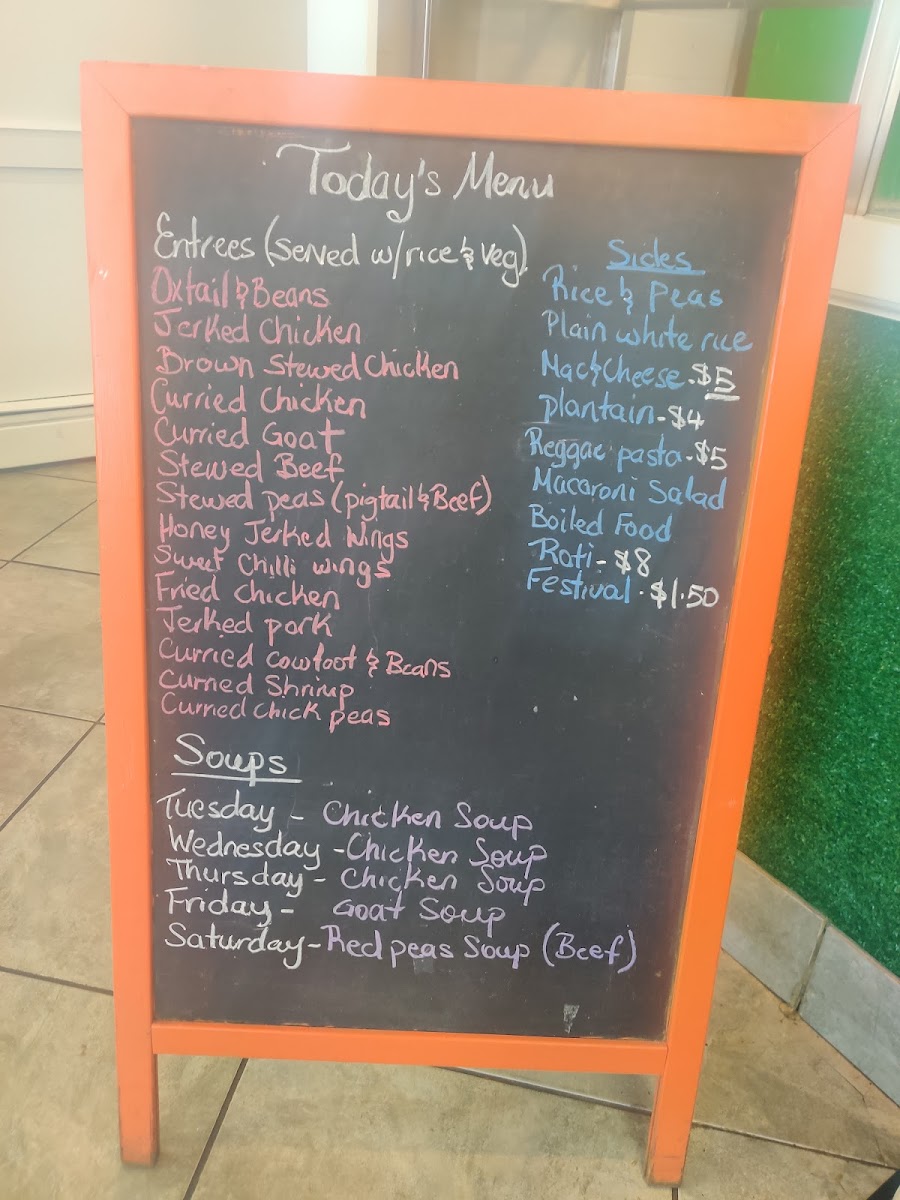 Today's Menu
Entrees (Served w/rice & Veg)
Oxtail & Beans
Jerked Chicken
Brown Stewed Chicken
Curried Chicken
Curried Goat
Stewed Beef
Stewed peas (pigtail & Beef)
Honey Jerked Wings
Sweet Chilli wings
Fried Chicken
Jerked pork
Curried cowfoot & Beans
Curried Shrimp
Curried chick peas
Sides
Rice & Peas
Plain white rice
Mac & Cheese - $5
plantain - $4
Reggae pasta - $5
Macaroni Salad
Boiled Food
Roti - $8
Festival - $1.50
Soups
Tuesday - Chicken Soup
Wednesday - Chicken Soup
Thursday - Chicken Soup
Friday - Goat Soup
Saturday - Red peas Soup (Beef)